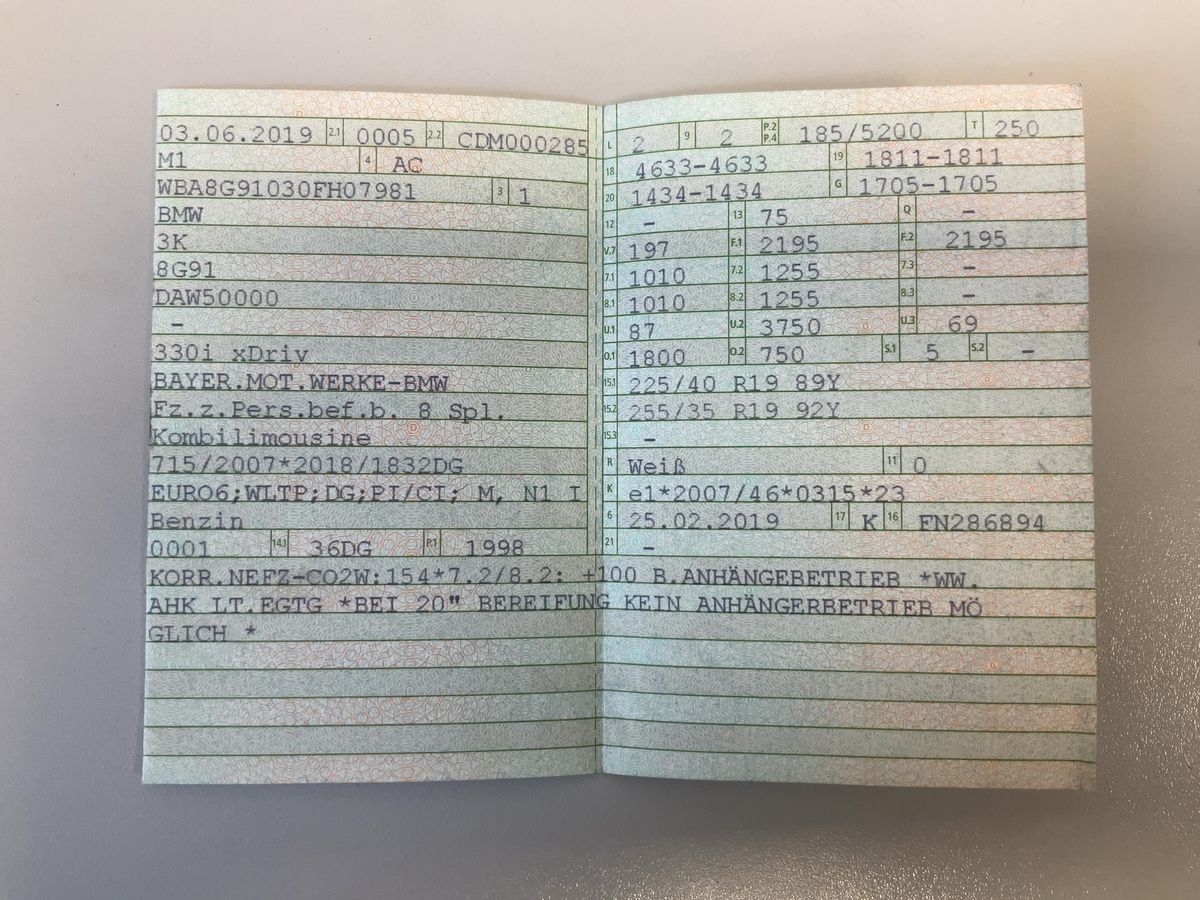 03.06.2019 2.1 0005 2.2 CDM000285
M1 4 AC
WBA8G91030FH07981 3 1
BMW
3K
8G91
DAW50000
–
330i xDriv
BAYER.MOT.WERKE-BMW
Fz.z.Pers.bef.b. 8 Spl.
Kombilimousine
715/2007*2018/1832DG
EURO6;WLTP;DG;PI/CI; M, N1 I
Benzin
0001 14.1 36DG P.1 1998
L 2 9 2 P.2 P.4 185/5200 T 250
18 4633-4633 19 1811-1811
20 1434-1434 G 1705-1705
12 – 13 75 Q –
V.7 197 F.1 2195 F.2 2195
7.1 1010 7.2 1255 7.3 –
8.1 1010 8.2 1255 8.3 –
U.1 87 U.2 3750 U.3 69
O.1 1800 O.2 750 S.1 5 S.2 –
15.1 225/40 R19 89Y
15.2 255/35 R19 92Y
15.3 –
R Weiß 11 0
K e1*2007/46*0315*23
6 25.02.2019 17 K 16 FN286894
21 –
KORR.NEFZ-CO2W:154*7.2/8.2: +100 B.ANHÄNGEBETRIEB *WW.
AHK LT.EGTG *BEI 20" BEREIFUNG KEIN ANHÄNGERBETRIEB MÖ
GLICH *